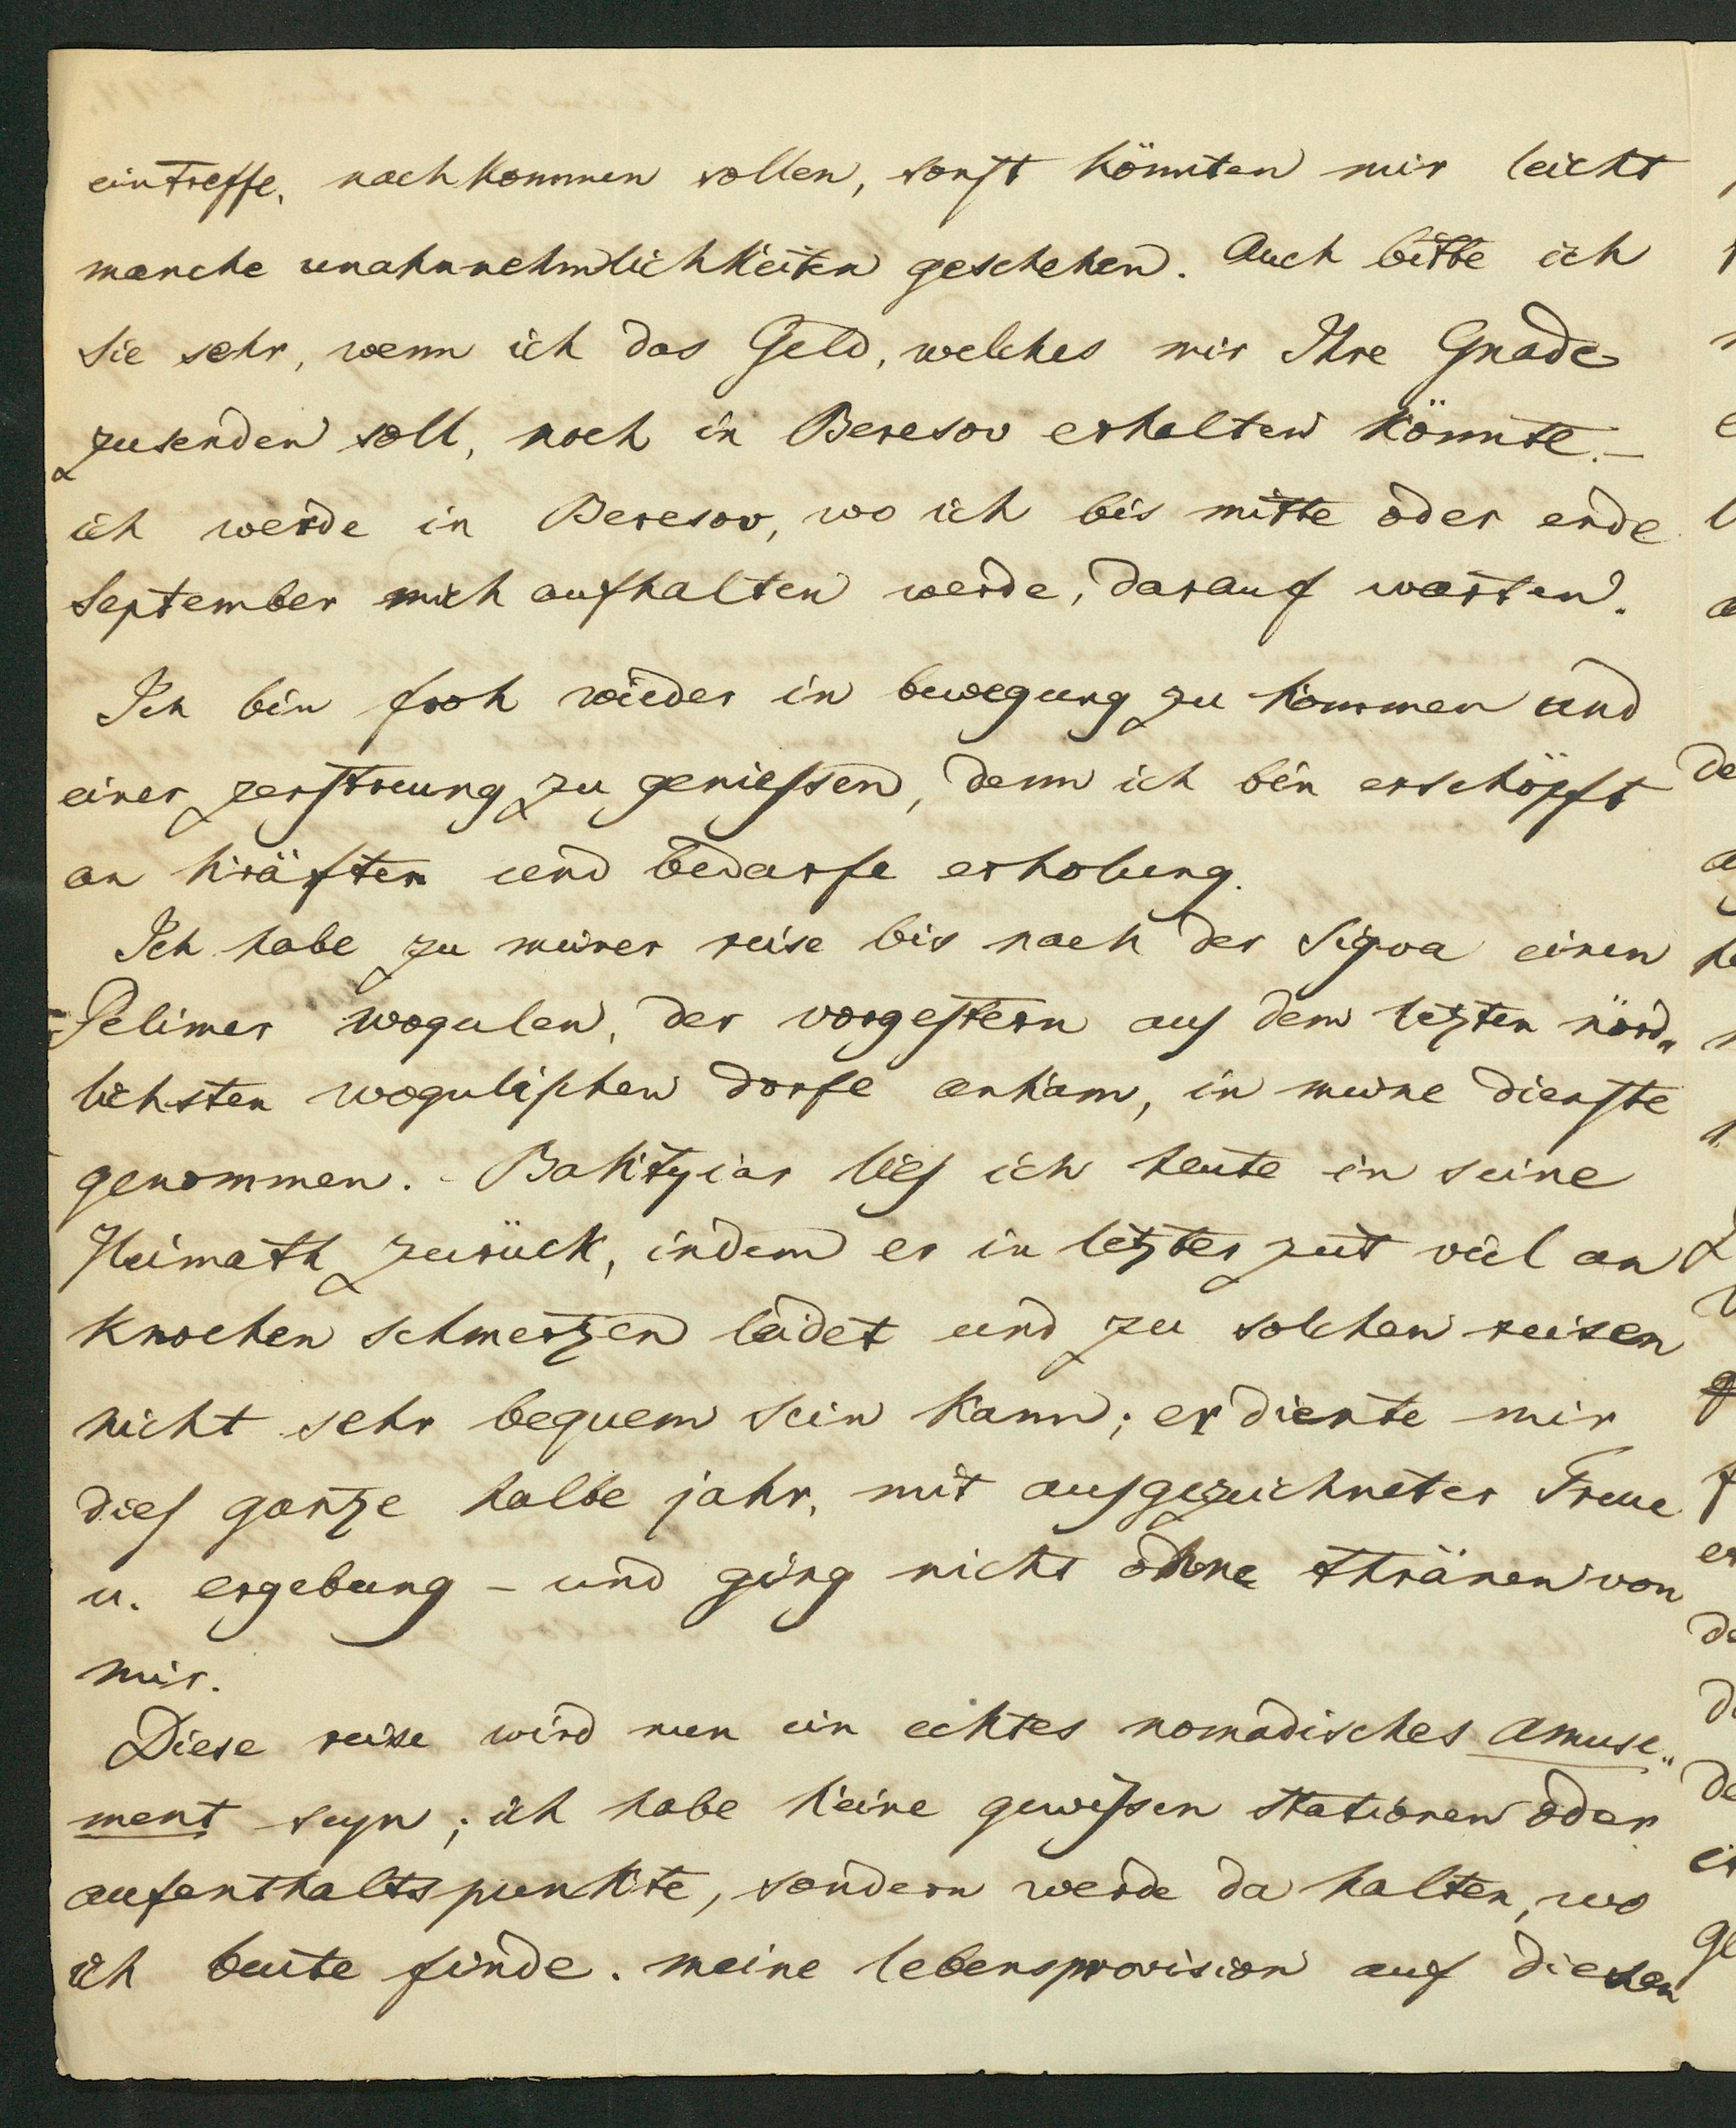 eintreffe, nachkommen sollen, sonst könnten mir leicht
manche unahnnehmlichkeiten geschehen. Auch bitte ich
Sie sehr, wenn ich das Geld, welches mir Ihre Gnade
zusenden soll, noch in Beresov erhalten könnte. –
ich werde in Beresov, wo ich bis mitte oder ende
September mich aufhalten werde, darauf warten.
Ich bin froh wieder in bewegung zu kommen und
einer zerstreung zu geniessen, denn ich bin erschöpft
an kräften und bedarfe erholung.
Ich habe zu meiner reise bis nach der Sigva einen
Pelimer wogulen, der vorgestern aus dem letzten nörd„
lichsten wogulischen dorfe ankam, in meine dienste
genommen. – Baktyiar lies ich heute in seine
Heimath zurück, indem er in letzter zeit viel an
knochen schmertzen leidet und zu solchen reisen
nicht sehr bequem sein kann; er diente mir
dies gantze halbe jahr, mit ausgezeichneter Treue
u. ergebung – und ging nicht ohne thränen von
mir.
Diese reise wird nun ein echtes nomadisches amuse„
ment seyn; ich habe keine gewissen stationen oder
aufenthaltspunkte, sondern werde da halten, wo
ich leute finde. meine lebensprovision auf diesen